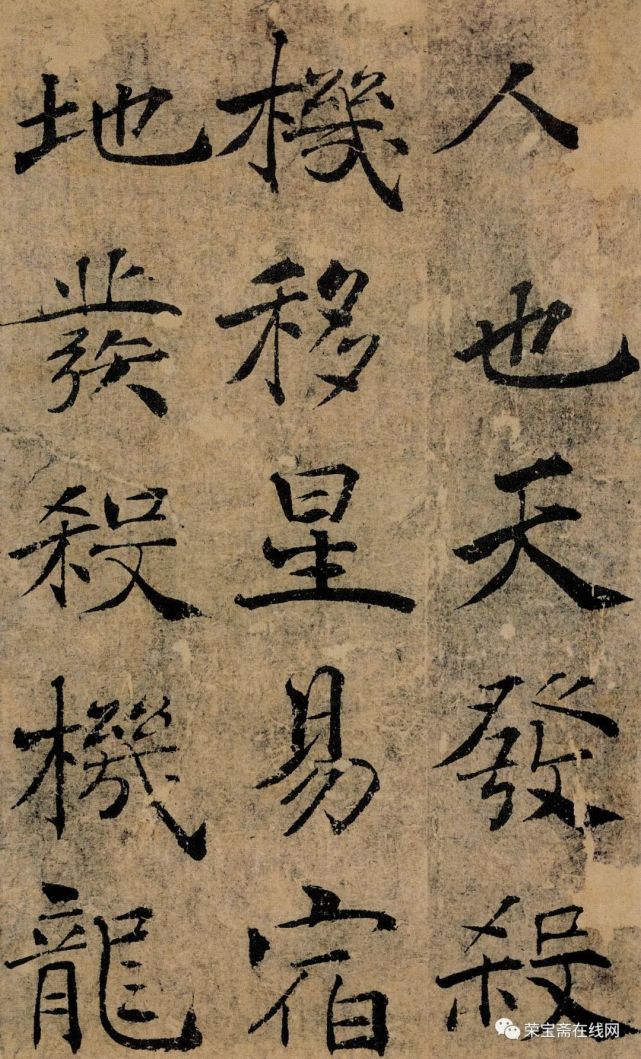 人也天發殺
機移星易宿
地發殺機龍
荣宝斋在线网